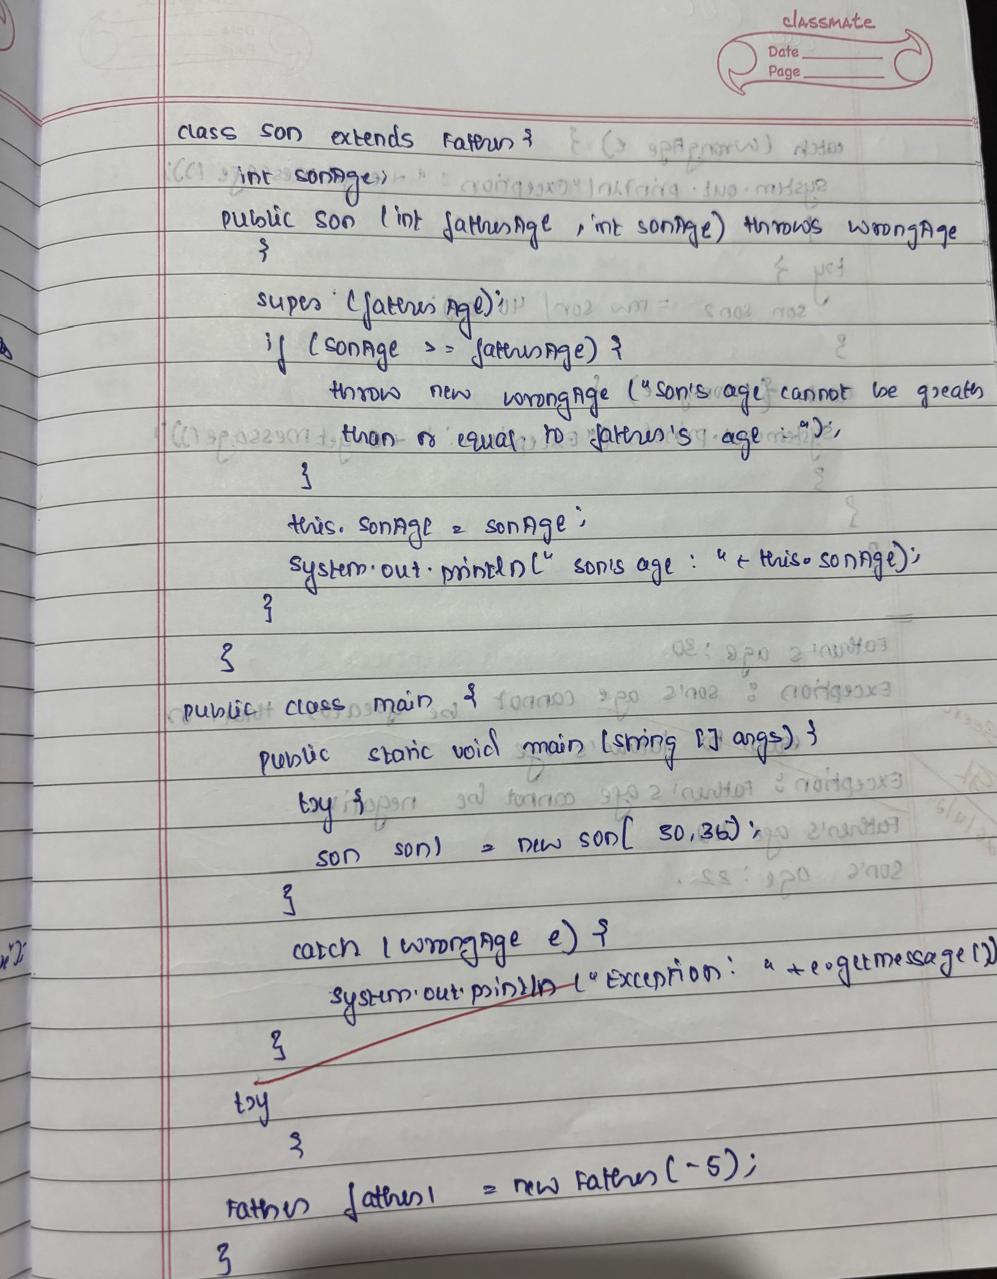 classmate
Date
Page
class son extends Father {
int sonAge;
public son (int fatherAge, int sonAge) throws wrongAge
{
super (fatherAge);
if (sonAge >= fatherAge) {
throw new wrongAge ("son's age cannot be greater
than or equal to father's age.");
}
this.sonAge = sonAge;
system.out.println(" son's age : " + this.sonAge);
}
}
public class main {
public static void main (string [] args) {
try {
son son1 = new son( 30,36);
}
catch (wrongAge e) {
system.out.println ("Exception: " + e.getmessage())
}
try
{
Father father1 = new Father(-5);
}